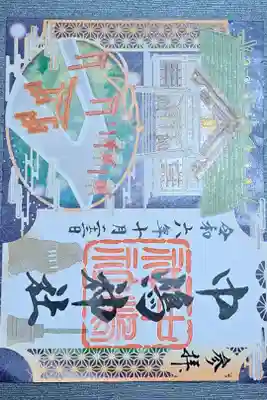 参拝
中嶋神社
令和六年十月二十三日